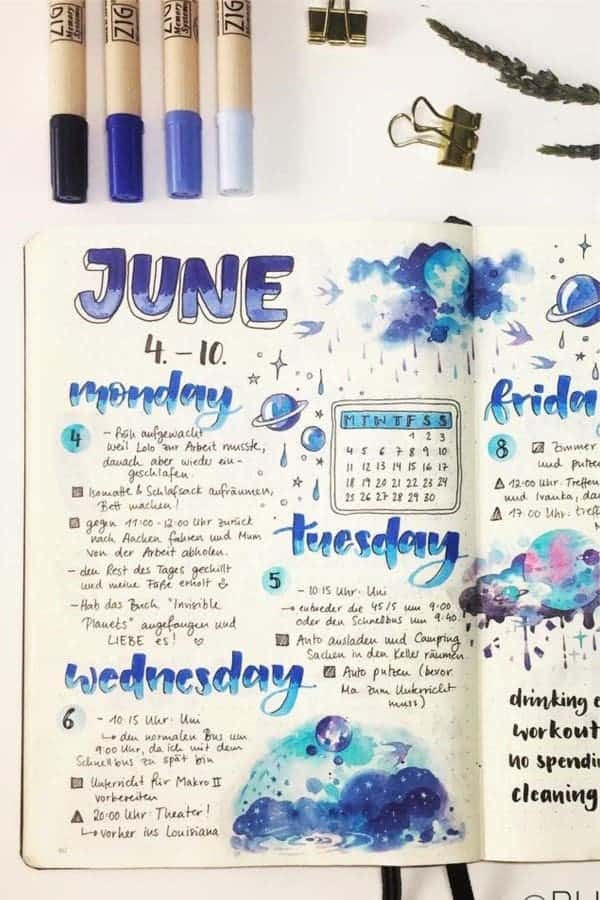 ZIG
Memory System
ZIG
Memory System
ZIG
Memory System
ZIG
JUNE
4. – 10.
monday
4
– früh aufgewacht
weil Lolo zur Arbeit musste,
danach aber wieder ein-
geschlafen.
Isomatte & Schlafsack aufräumen,
Bett machen!
gegen 11:00 - 12:00 Uhr zurück
nach Aachen fahren und Mum
von der Arbeit abholen.
– den Rest des Tages gechillt
und meine Füße erholt
– Hab das Buch "Invisible
Planets" angefangen und
LIEBE es! ♡
M T W T F S S
1 2 3
4 5 6 7 8 9 10
11 12 13 14 15 16 17
18 19 20 21 22 23 24
25 26 27 28 29 30
tuesday
5
– 10:15 Uhr: Uni
↳ entweder die 45/5 um 9:00
oder den Schnellbus um 9:40.
Auto ausladen und Camping
Sachen in den Keller räumen.
Auto putzen (bevor
Ma zum Unterricht
muss)
wednesday
6
– 10:15 Uhr: Uni
↳ den normalen Bus um
9:00 Uhr, da ich mit dem
Schnellbus zu spät bin
Unterricht für Makro II
vorbereiten
20:00 Uhr: Theater!
↳ vorher ins Louisiana
frida
8
Zimmer
und putze
12:00 Uhr: Treffen
und Ivanka, dan
17:00 Uhr: tref
drinking
workout
no spendi
cleaning